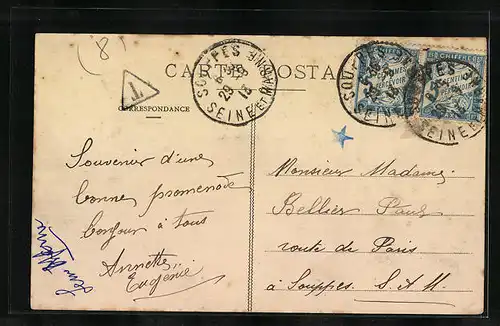 (8)
CARTE POSTA
T
CORRESPONDANCE
SOUPPES
SEINE ET MARNE
29
18
SOUPPES
SEINE ET
CHIFFRE
Souvenir d'une
bonne promenade
Bonjour à tous
Annette
Eugénie
Monsieur Madame
Bellier Paul
route de Paris
à Souppes. S. & M.